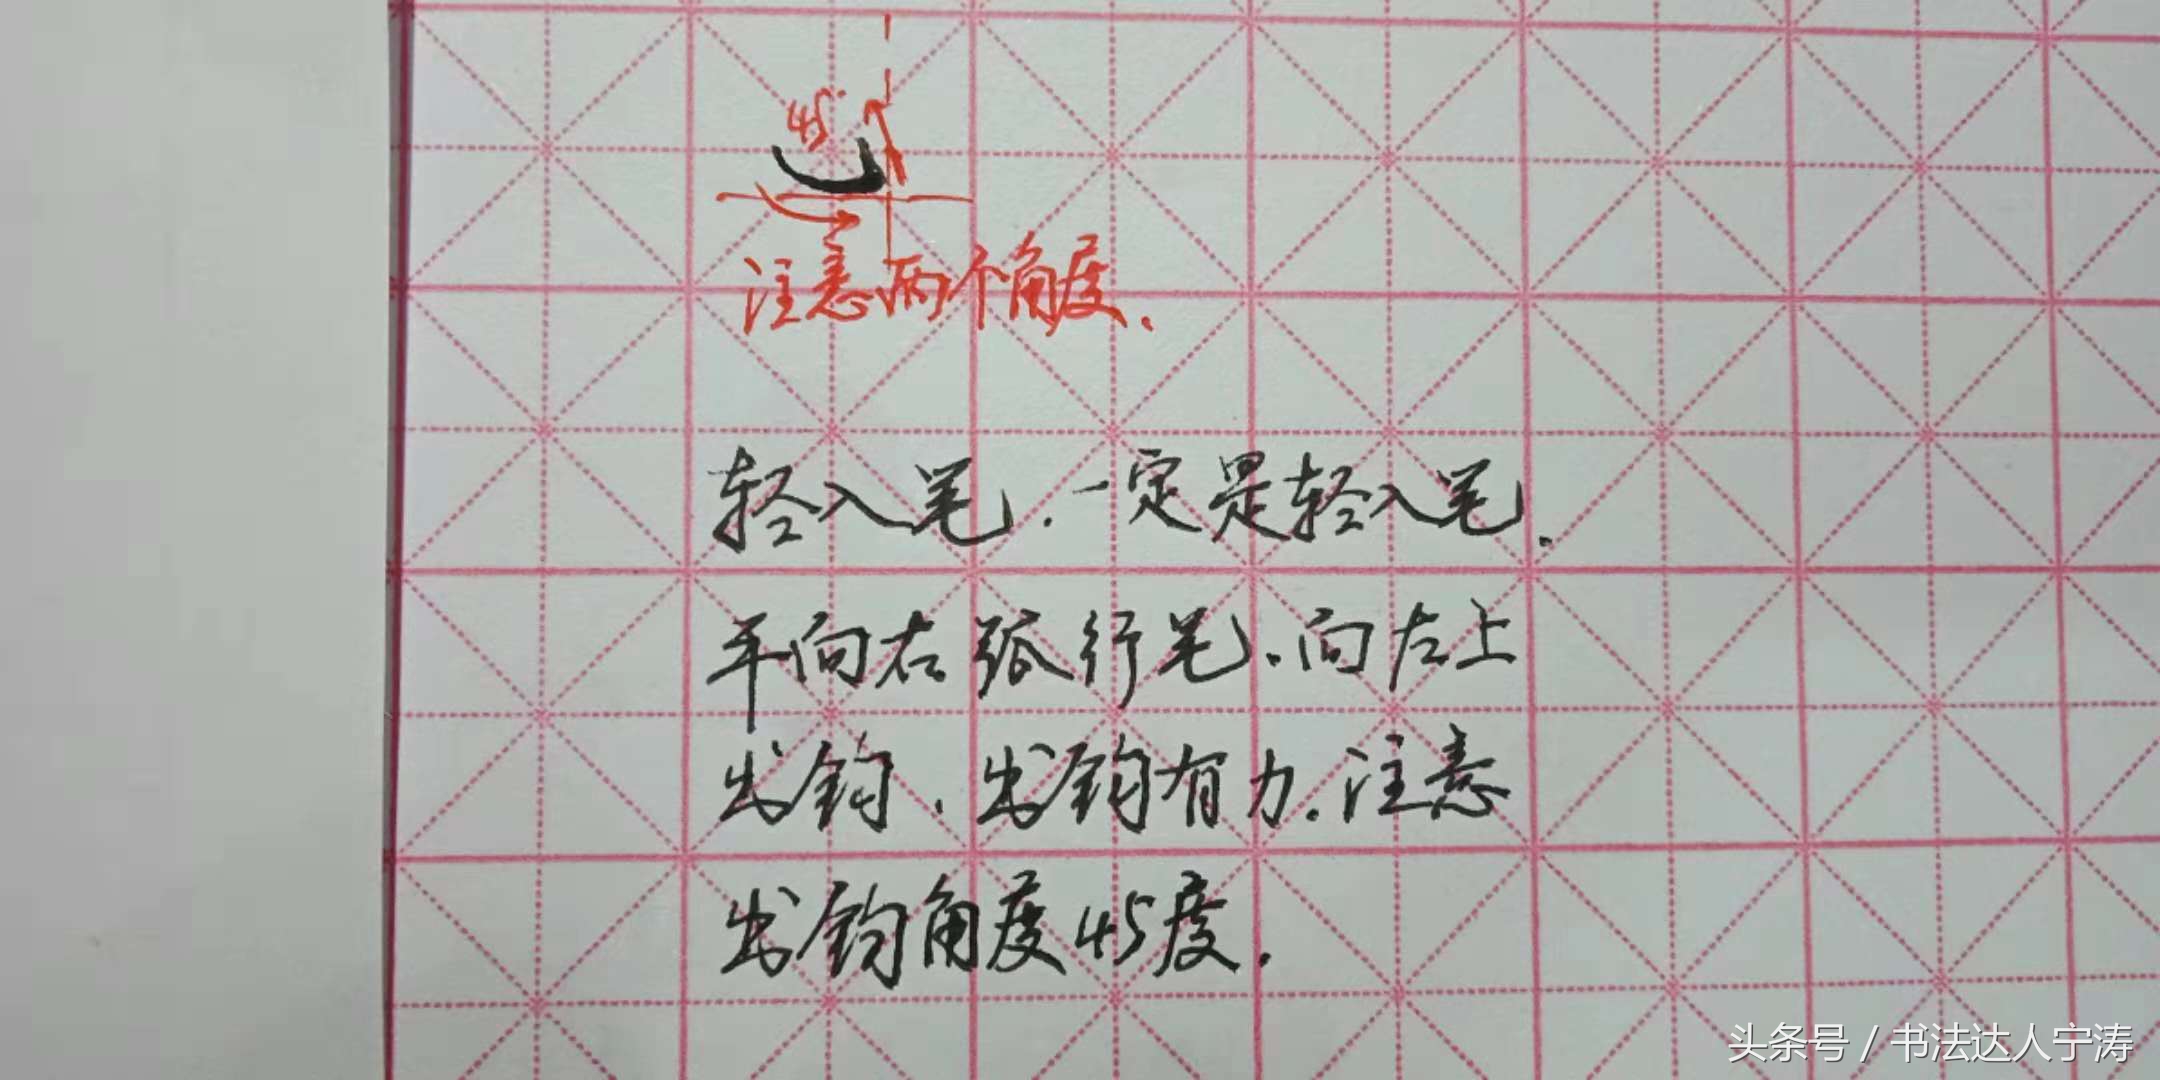 45°
注意两个角度.
轻入笔.一定是轻入笔.
平向右弧行笔.向左上
出钩.出钩有力.注意
出钩角度45度.
头条号 / 书法达人宁涛